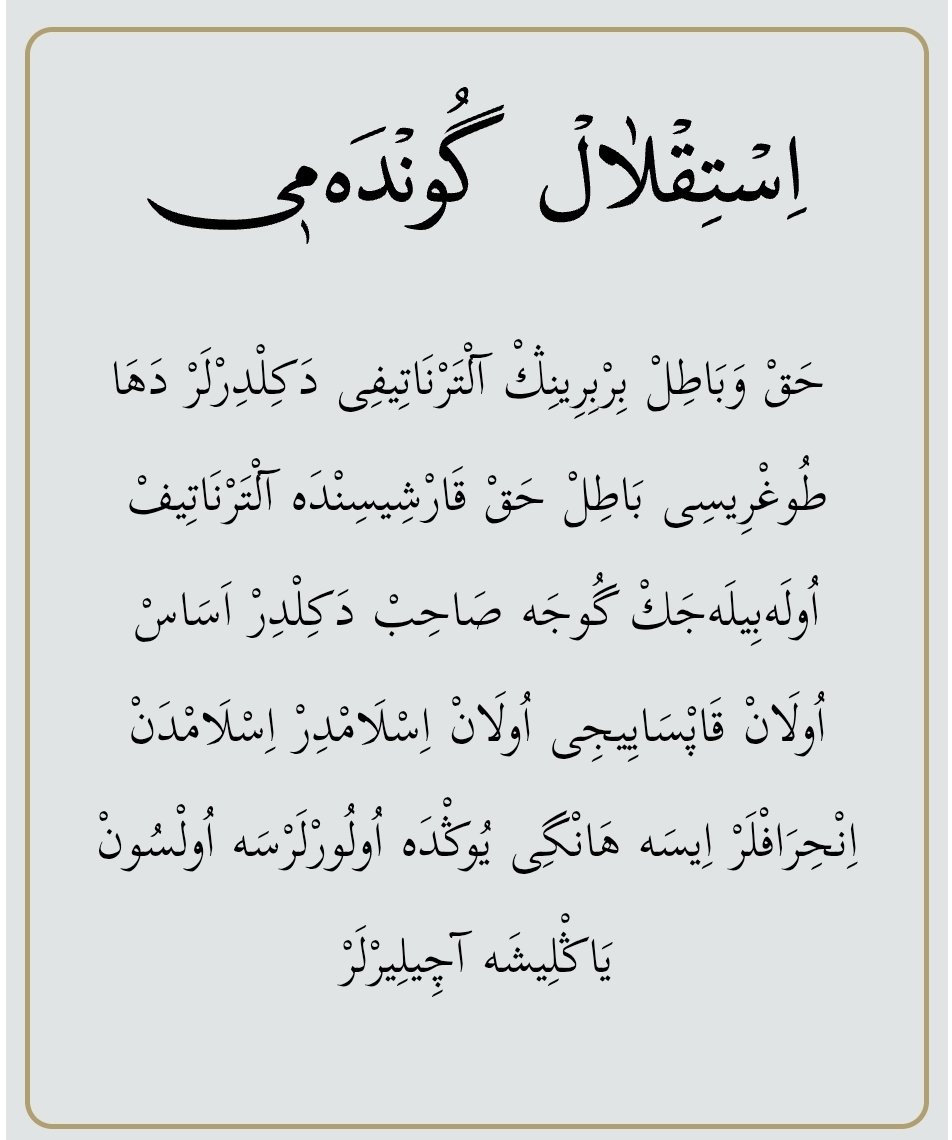 اِسْتِقْلٰالْ گُونْدَه‌مِي
حَقْ وَبَاطِلْ بِرْبِرِينِڭْ آلْتَرْنَاتِيفِى دَكِلْدِرْلَرْ دَهَا
طُوغْرِيسِى بَاطِلْ حَقْ قَارْشِيسِنْدَه آلْتَرْنَاتِيفْ
اُولَه‌بِيلَه‌جَكْ گُوجَه صَاحِبْ دَكِلْدِرْ اَسَاسْ
اُولَانْ قَاپْسَايِيجِى اُولَانْ اِسْلَامْدِرْ اِسْلَامْدَنْ
اِنْحِرَافْلَرْ اِيسَه هَانْگِى يُوڭْدَه اُولُورْلَرْسَه اُولْسُونْ
يَاڭْلِيشَه آچِيلِيرْلَرْ